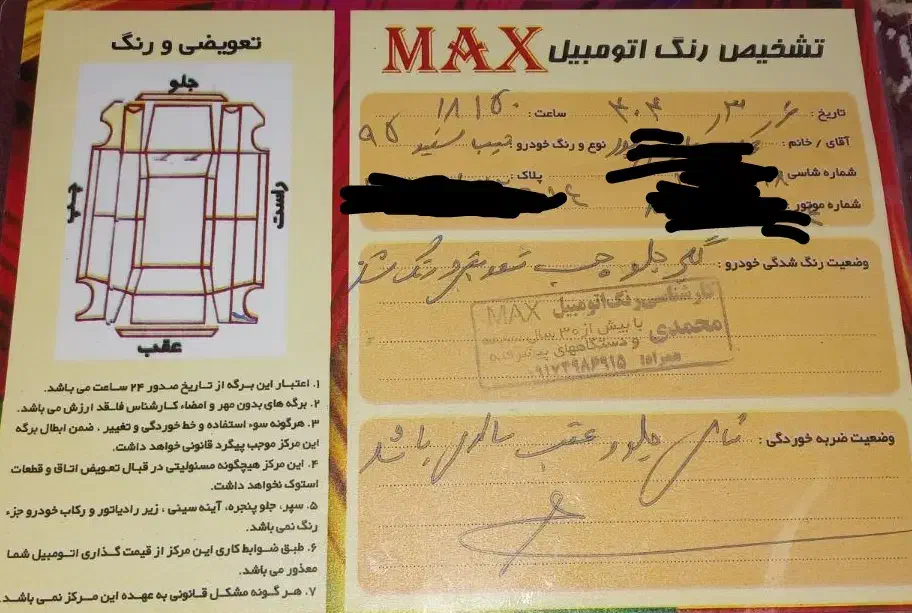 تشخیص رنگ اتومبیل MAX
تاریخ : ساعت : ۱۸:۱۵
آقای / خانم : نوع و رنگ خودرو : تیبا سفید ۹۵
شماره شاسی : پلاک :
شماره موتور :
وضعیت رنگ شدگی خودرو : گلگیر جلو چپ تعویض و رنگ شده
کارشناسی رنگ اتومبیل MAX
محمدی با بیش از ۳۰ سال
و دستگاههای پیشرفته
همراه:
وضعیت ضربه خوردگی : شاسی جلو و عقب سالم می باشد
تعویضی و رنگ
جلو
چپ
راست
عقب
۱. اعتبار این برگه از تاریخ صدور ۲۴ ساعت می باشد.
۲. برگه های بدون مهر و امضاء کارشناس فاقد ارزش می باشد.
۳. هرگونه سوء استفاده و خط خوردگی و تغییر ، ضمن ابطال برگه
این مرکز موجب پیگرد قانونی خواهد داشت.
۴. این مرکز هیچگونه مسئولیتی در قبال تعویض اتاق و قطعات
استوک نخواهد داشت.
۵. سپر، جلو پنجره، آینه سینی ، زیر رادیاتور و رکاب خودرو جزء
رنگ نمی باشد.
۶. طبق ضوابط کاری این مرکز از قیمت گذاری اتومبیل شما
معذور می باشد.
۷. هر گونه مشکل قانونی به عهده این مرکز نمی باشد.